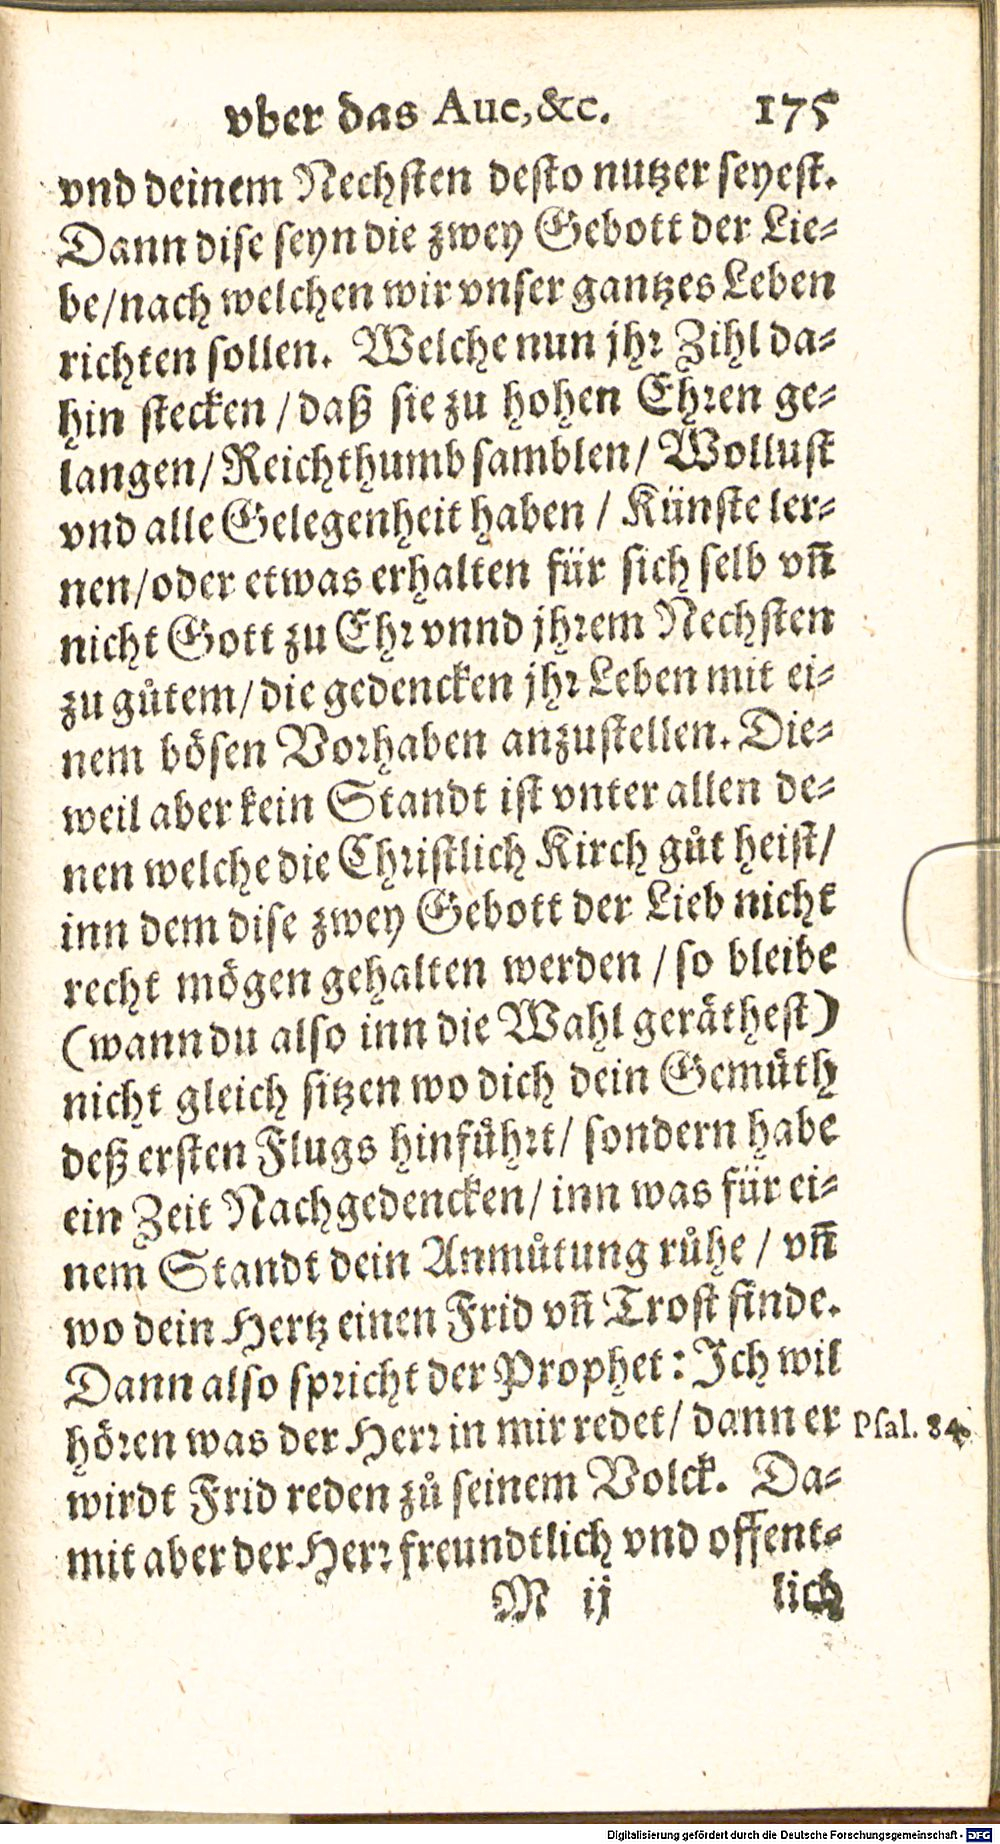 vber das Aue, &c. 175
vnd deinem Nechsten desto nutzer seyest.
Dann dise seyn die zwey Gebott der Lie-
be/nach welchen wir vnser gantzes Leben
richten sollen. Welche nun jhr Zihl da-
hin stecken / daß sie zu hohen Ehren ge-
langen/ Reichthumb samblen/ Wollust
vnd alle Gelegenheit haben / Künste ler-
nen/oder etwas erhalten für sich selb vñ
nicht Gott zu Ehr vnnd jhrem Nechsten
zu gůtem/ die gedencken jhr Leben mit ei-
nem bösen Vorhaben anzustellen. Die-
weil aber kein Standt ist vnter allen de-
nen welche die Christlich Kirch gůt heist/
inn dem dise zwey Gebott der Lieb nicht
recht mögen gehalten werden / so bleibe
(wann du also inn die Wahl geräthest)
nicht gleich sitzen wo dich dein Gemůth
deß ersten Flugs hinfůhrt/ sondern habe
ein Zeit Nachgedencken/ inn was für ei-
nem Standt dein Anmůtung růhe / vñ
wo dein Hertz einen Frid vñ Trost finde.
Dann also spricht der Prophet: Ich wil
hören was der Herr in mir redet/ dann er
Psal. 84.
wirdt Frid reden zů seinem Volck. Da-
mit aber der Herr freundtlich vnd offent-
M ij lich
Digitalisierung gefördert durch die Deutsche Forschungsgemeinschaft - DFG